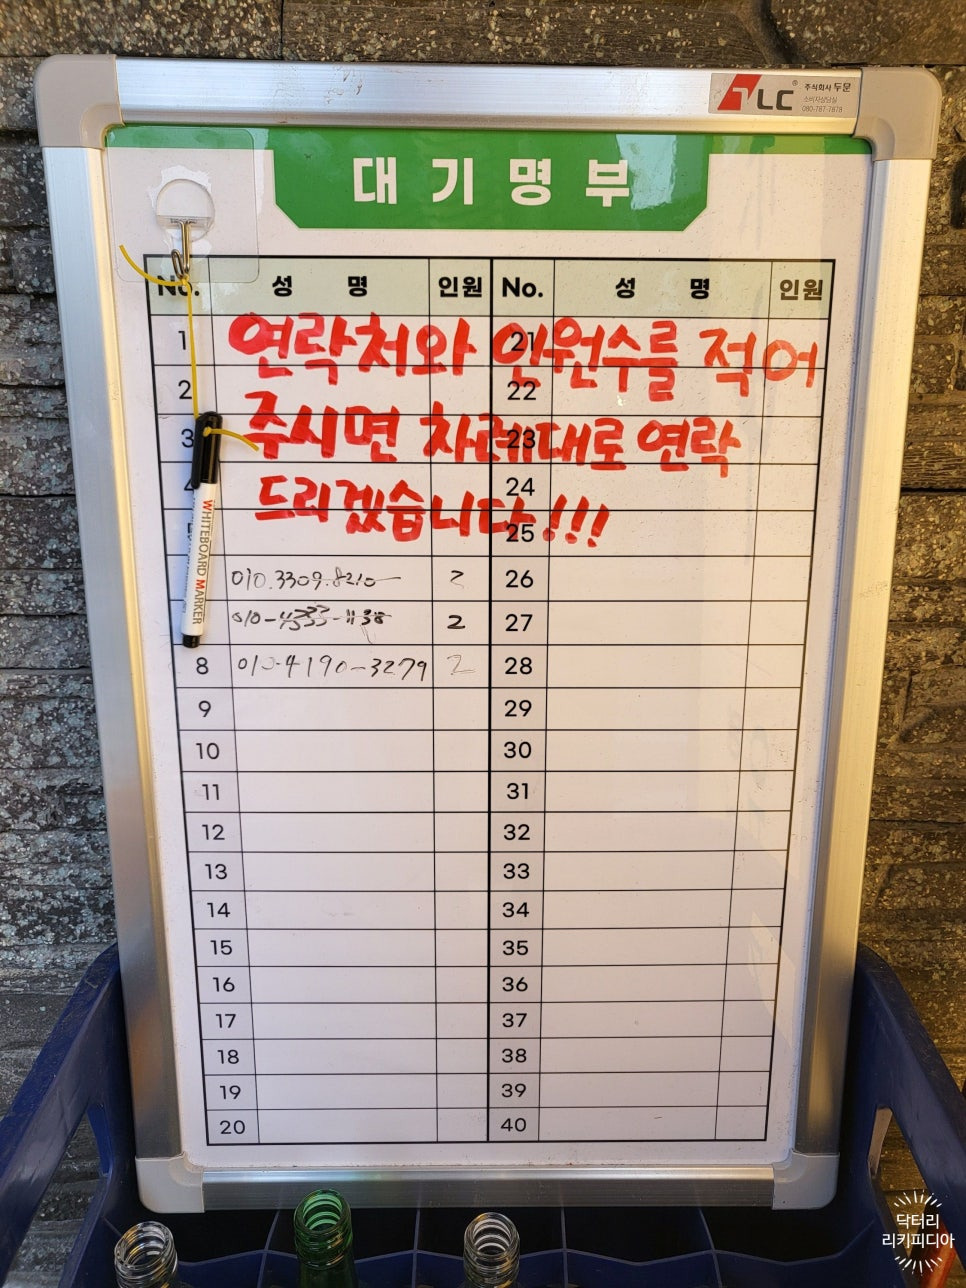 TLC
주식회사 두문
소비자상담실
080-787-7878
대기명부
No. 성 명 인원 No. 성 명 인원
연락처와 인원수를 적어
주시면 차례대로 연락
드리겠습니다!!!
1 21
2 22
3 23
4 24
25
010.3309.8210 2 26
2 27
8 010-4190-3279 2 28
9 29
10 30
11 31
12 32
13 33
14 34
15 35
16 36
17 37
18 38
19 39
20 40
WHITEBOARD MARKER
닥터리
리키피디아